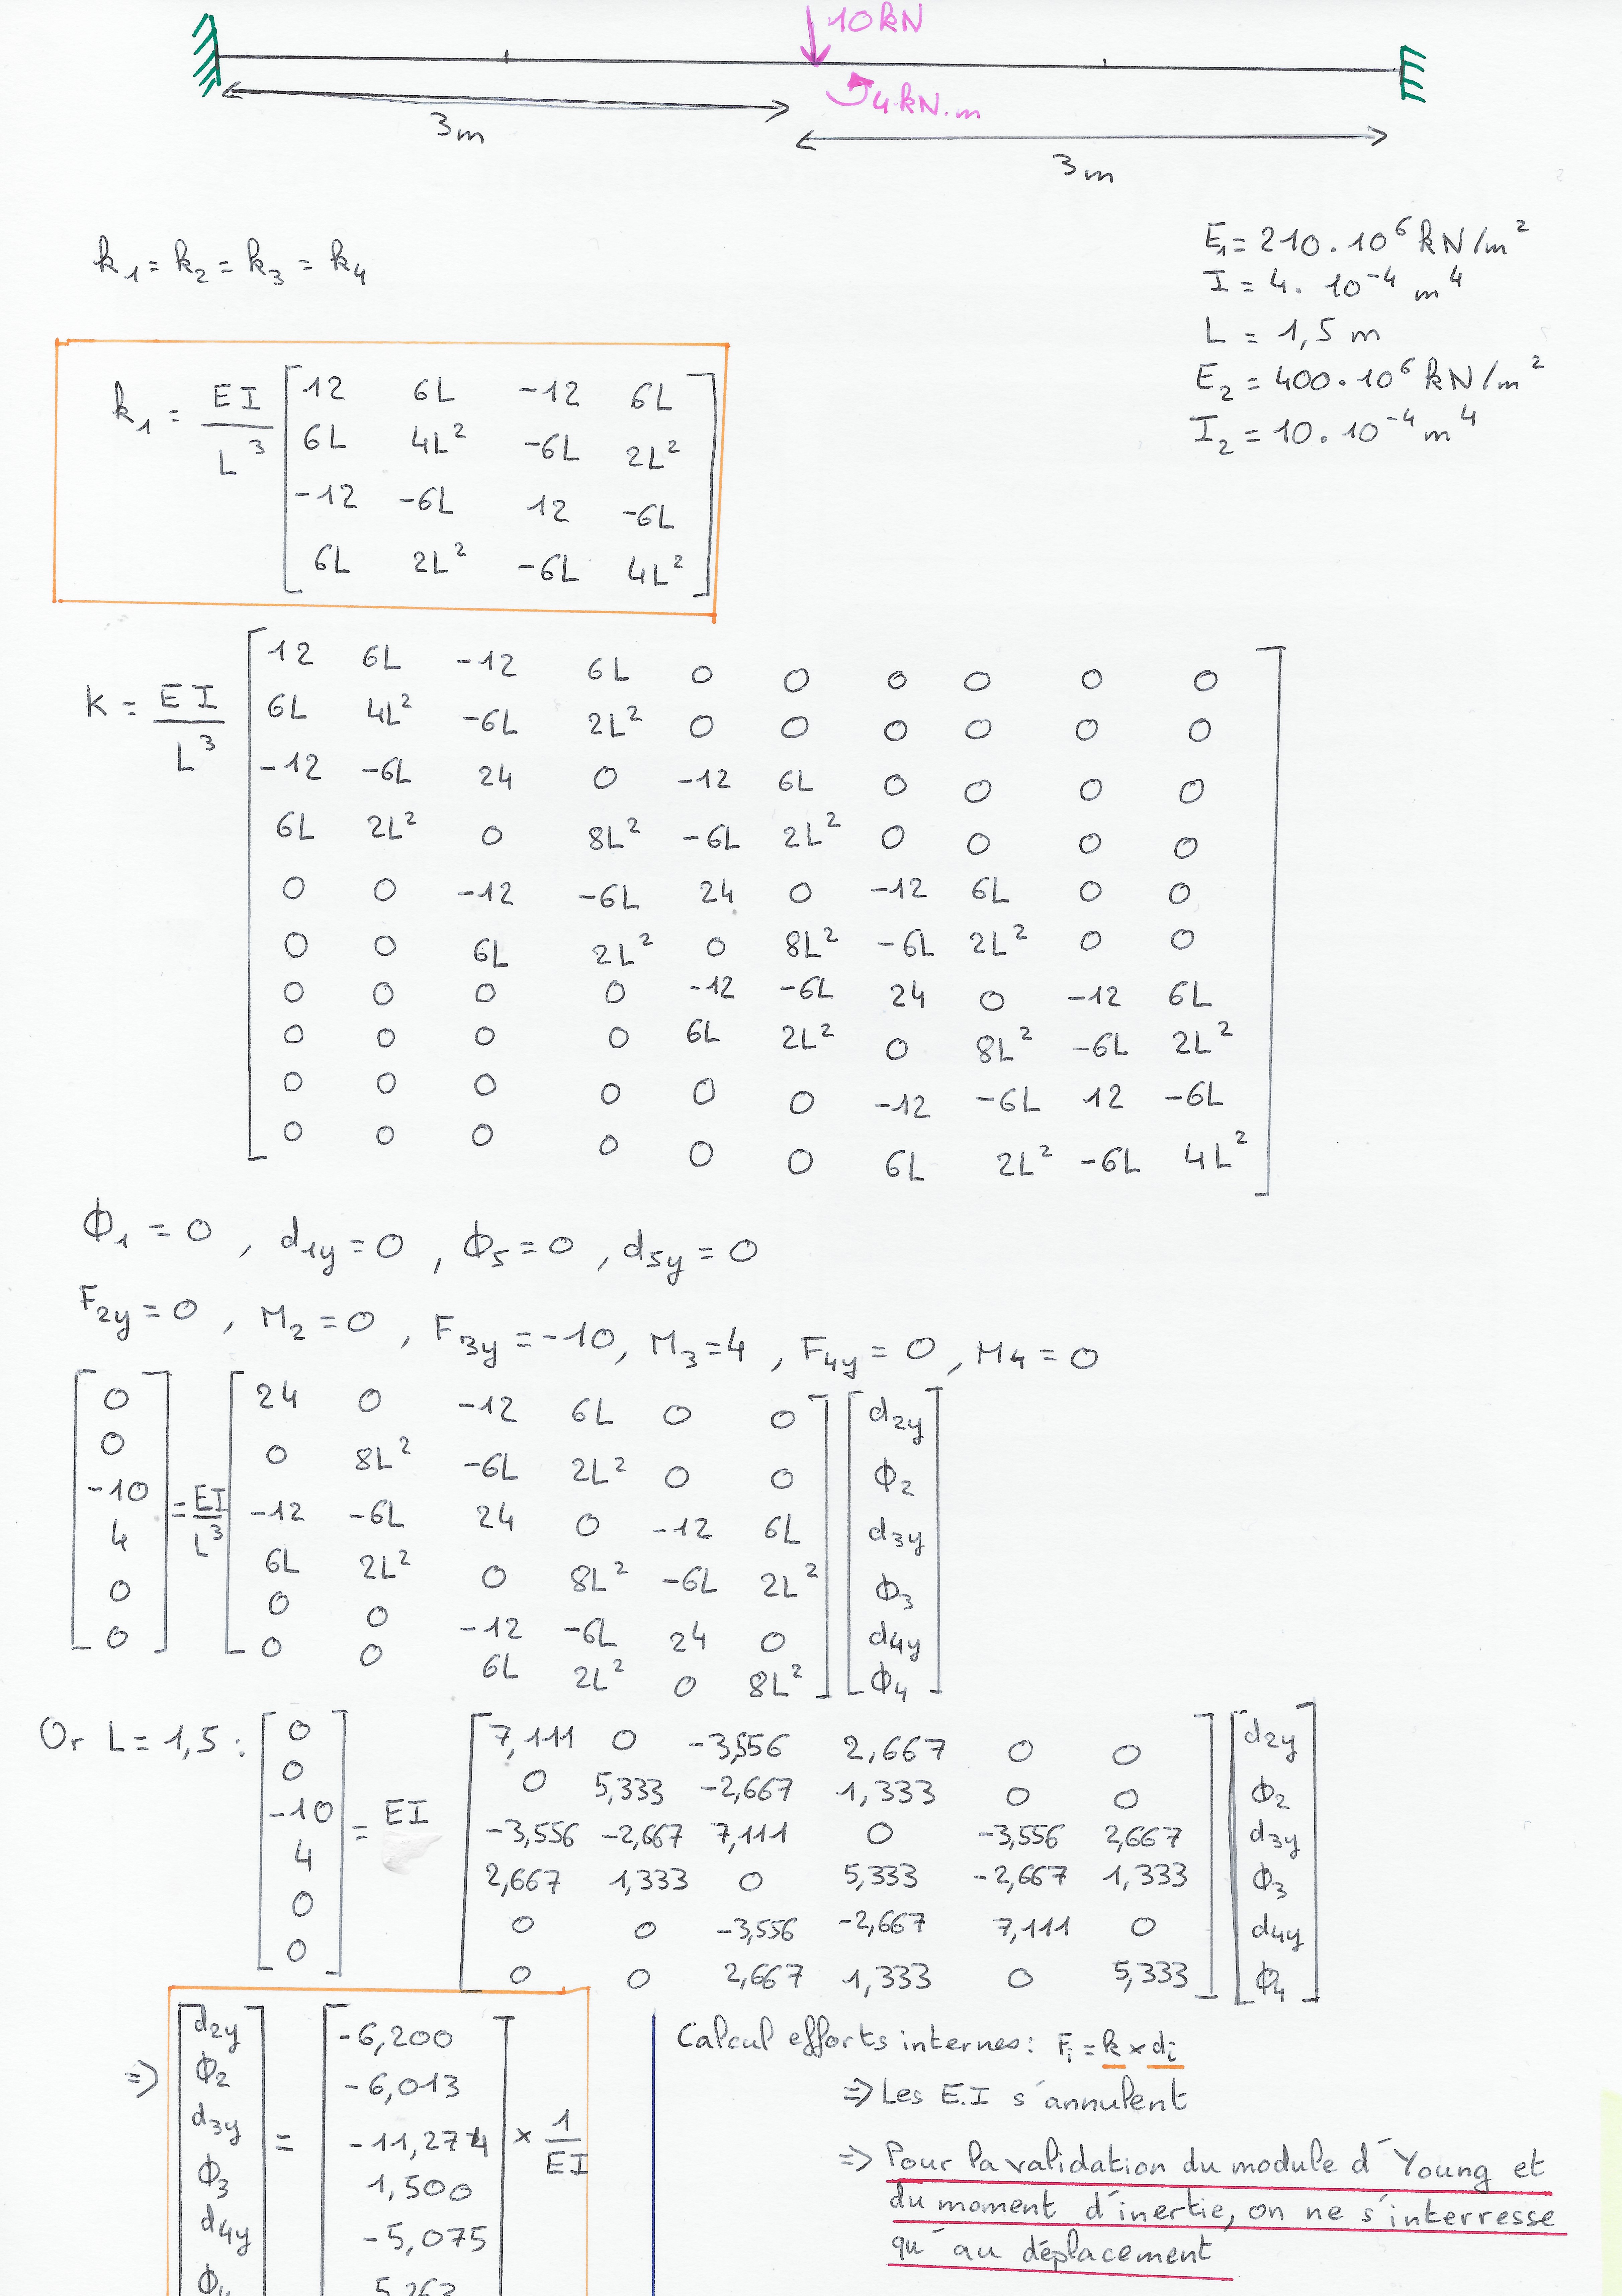 10kN
4kN.m
3m
3m
k₁ = k₂ = k₃ = k₄
E₁ = 210 . 10⁶ kN/m²
I = 4 . 10⁻⁴ m⁴
L = 1,5 m
E₂ = 400 . 10⁶ kN/m²
I₂ = 10 . 10⁻⁴ m⁴
k₁ = EI/L³
12 6L -12 6L
6L 4L² -6L 2L²
-12 -6L 12 -6L
6L 2L² -6L 4L²
k = EI/L³
12 6L -12 6L 0 0 0 0 0 0
6L 4L² -6L 2L² 0 0 0 0 0 0
-12 -6L 24 0 -12 6L 0 0 0 0
6L 2L² 0 8L² -6L 2L² 0 0 0 0
0 0 -12 -6L 24 0 -12 6L 0 0
0 0 6L 2L² 0 8L² -6L 2L² 0 0
0 0 0 0 -12 -6L 24 0 -12 6L
0 0 0 0 6L 2L² 0 8L² -6L 2L²
0 0 0 0 0 0 -12 -6L 12 -6L
0 0 0 0 0 0 6L 2L² -6L 4L²
ϕ₁ = 0 , d₁y = 0 , ϕ₅ = 0 , d₅y = 0
F₂y = 0 , M₂ = 0 , F₃y = -10, M₃ = 4 , F₄y = 0 , M₄ = 0
0 24 0 -12 6L 0 0 d₂y
0 0 8L² -6L 2L² 0 0 ϕ₂
-10 = EI/L³ -12 -6L 24 0 -12 6L d₃y
4 6L 2L² 0 8L² -6L 2L² ϕ₃
0 0 0 -12 -6L 24 0 d₄y
0 0 0 6L 2L² 0 8L² ϕ₄
Or L = 1,5 : 0 7,111 0 -3,556 2,667 0 0 d₂y
0 0 5,333 -2,667 1,333 0 0 ϕ₂
-10 = EI -3,556 -2,667 7,111 0 -3,556 2,667 d₃y
4 2,667 1,333 0 5,333 -2,667 1,333 ϕ₃
0 0 0 -3,556 -2,667 7,111 0 d₄y
0 0 0 2,667 1,333 0 5,333 ϕ₄
d₂y -6,200
ϕ₂ -6,013
=> d₃y = -11,274 × 1/EI
ϕ₃ 1,500
d₄y -5,075
ϕ₄ 5,263
Calcul efforts internes : Fᵢ = k × dᵢ
=> Les E.I s'annulent
=> Pour la validation du module d'Young et
du moment d'inertie, on ne s'interresse
qu'au déplacement